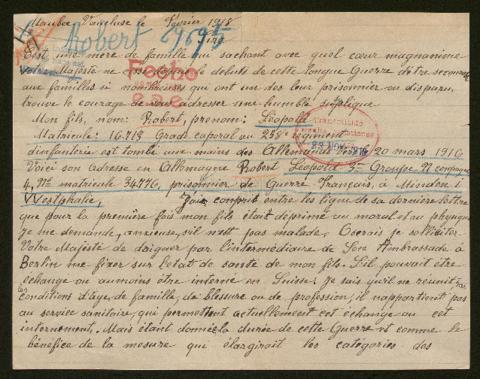 Maubec, Vaucluse le Février 1918
Robert 29695
Sire
C'est une mere de famille qui sachant avec quel cœur magnanime
Votre Majesté ne cesse depuis le debuts de cette longue Guerre d'etre secourable
Fecho
aux familles si nombreuses qui ont une des leur prisonnier ou disparu,
trouve le courage de vous adresser une humble suplique
Mon fils, nom: Robert, prenom: Léopold
Matricule: 16.718 Grade caporal au 258e regiment
dinfanterie est tombé aux mains des Allemands le 20 mars 1916.
Voici son adresse en Allemagne Robert Léopold 3e Groupe 11 compagnie
4, No matricule 34776, prisonnier de Guerre Français, à Minden i.
Westphalie, J'ai comprit entre les ligne de sa dernière lettre
que pour la première fois mon fils était deprimé au moral et au physique
je me demande, anxieuse, s'il nest pas malade. Oserais je solliciter
Votre Majesté de daigner par l'intermédiaire de Son Ambassade à
Berlin me fixer sur l'etat de santé de mon fils. S'il pouvait être
échangé ou aumoins être interné en Suisse; je sais qu'il ne réunit pas
les conditions d'âge, de famille, de blessure ou de profession, il n'appartient pas
au service sanitaire, qui permettent actuellement cet échange ou cet
internement. Mais étant donné la durée de cette Guerre et comme le
bénefice de la mesure qui élargirait les catégories des